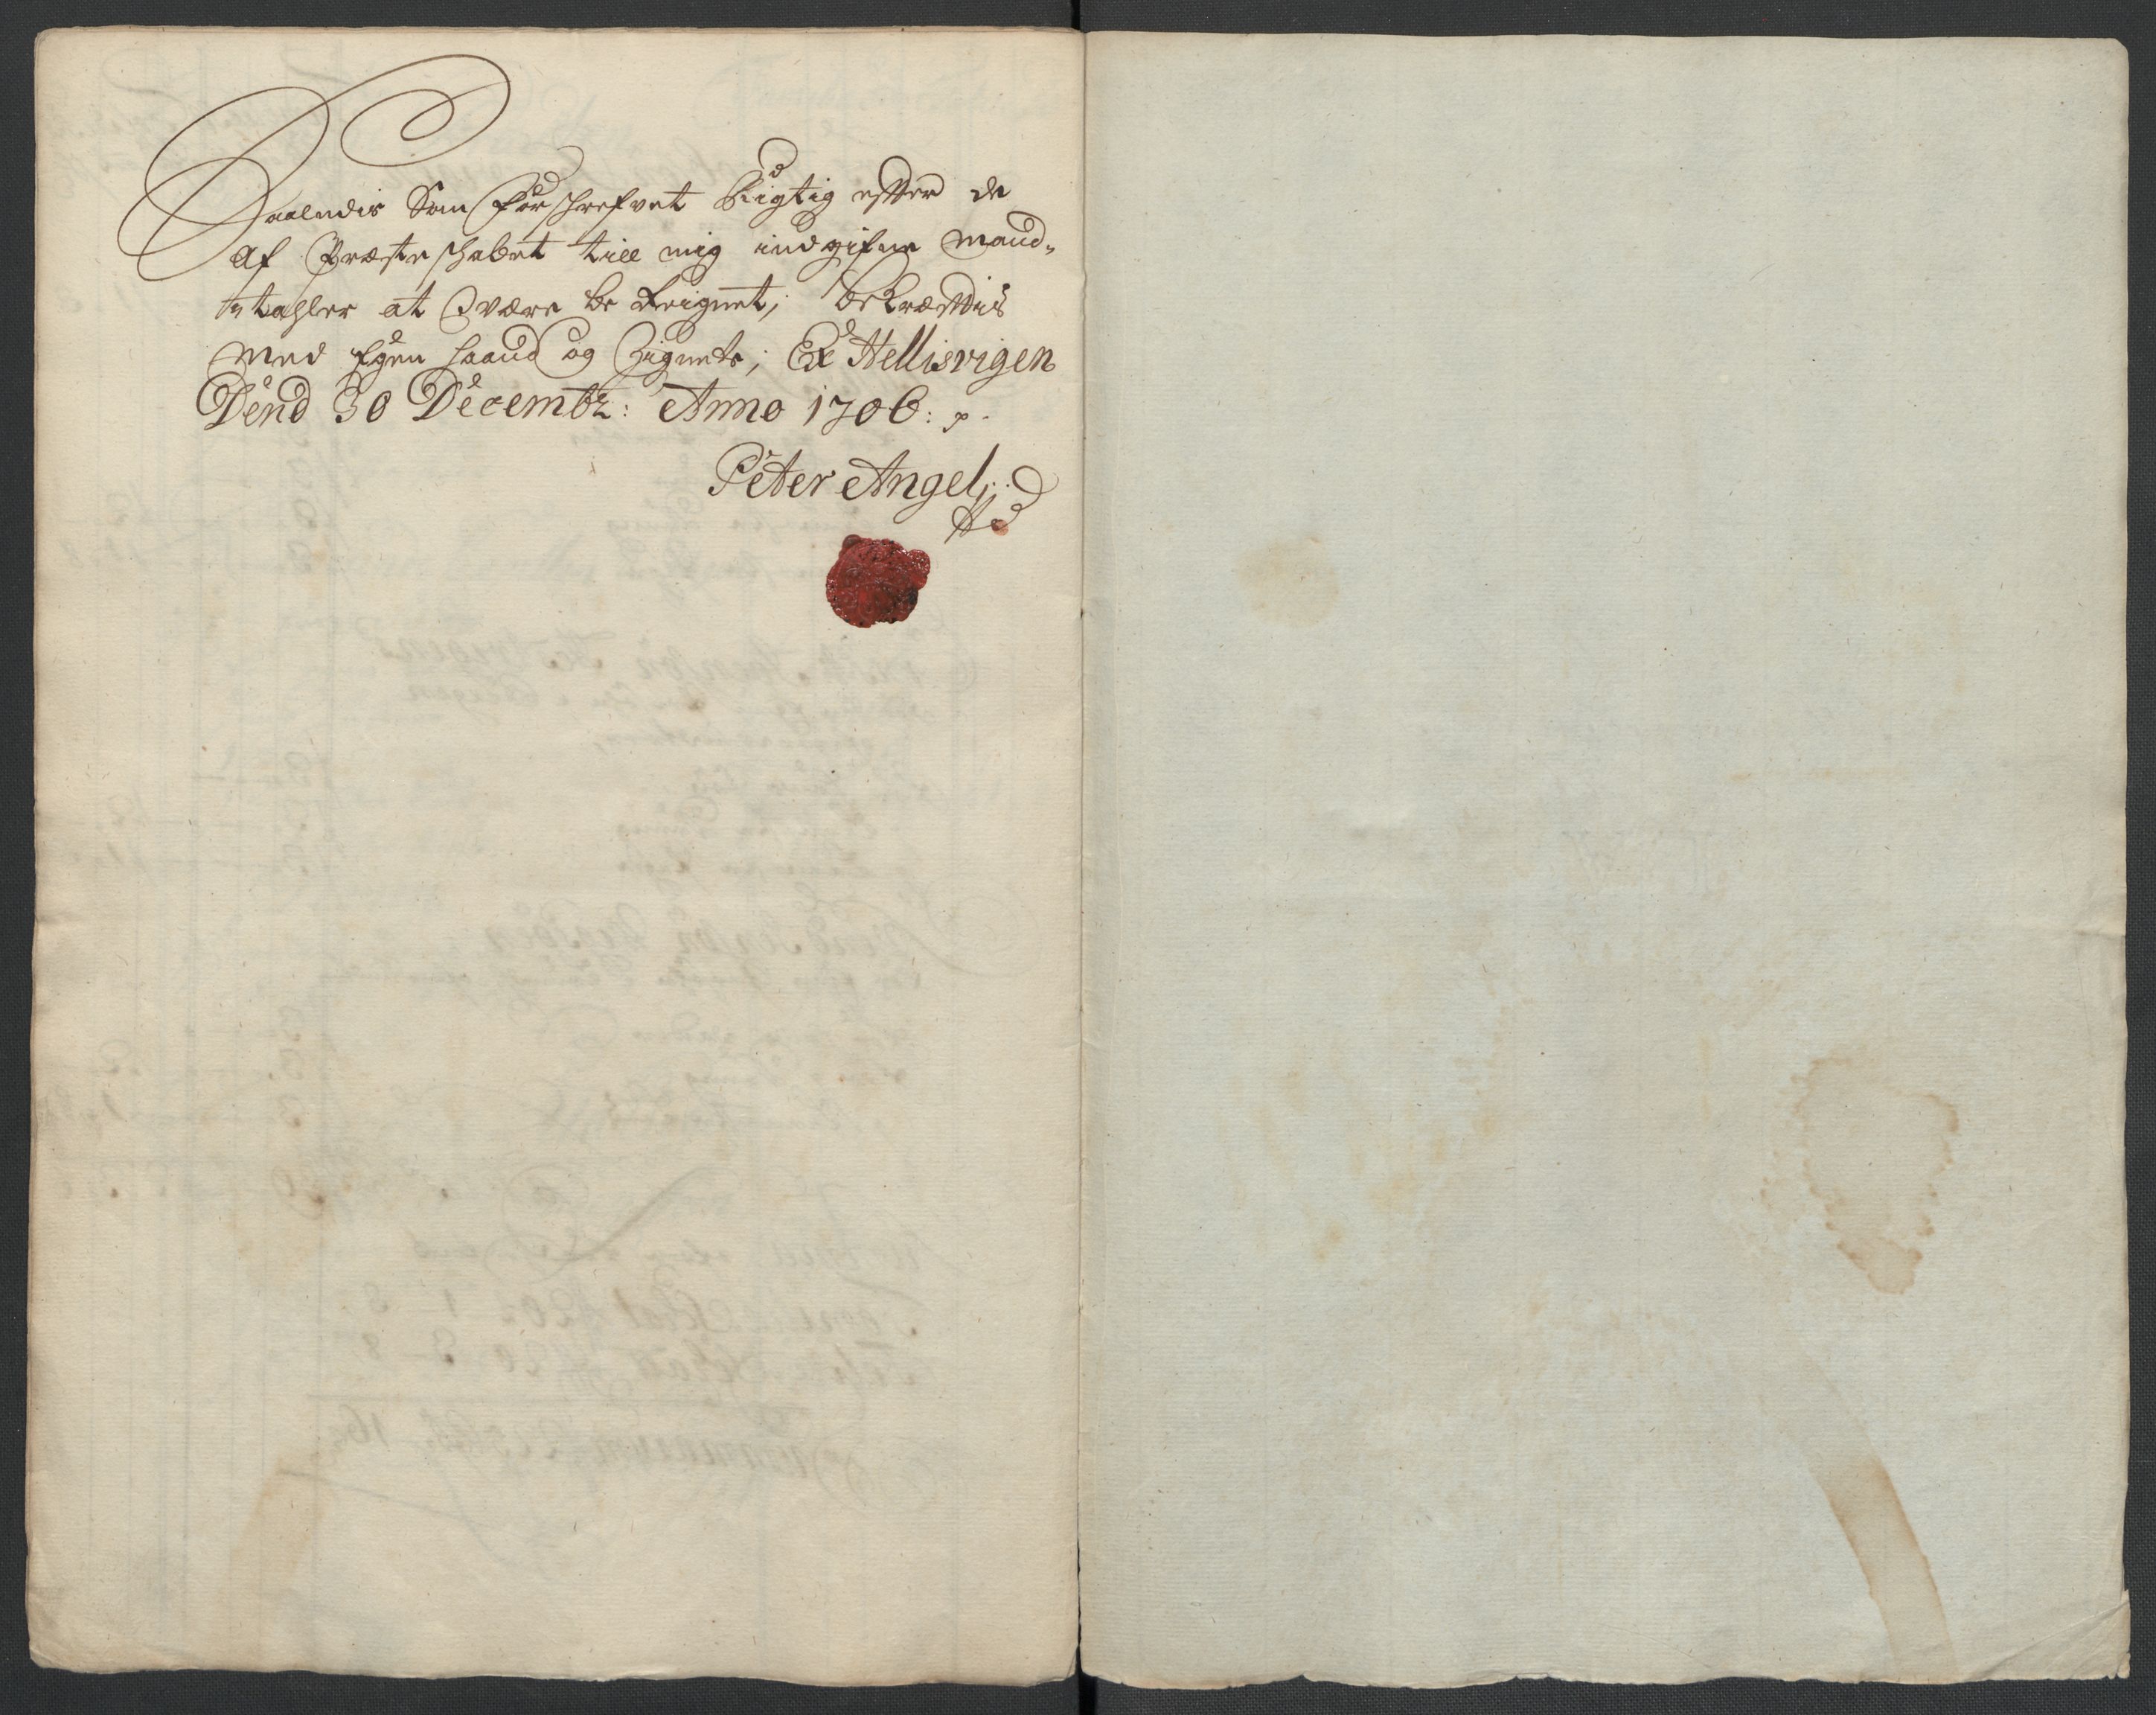 Saaledis Som forschrefvet Rigtig efter de
af Præsteschabet till mig indgifne Mand-
tahler at være be Reignet; bekræftis
Med Egen haand og Zignete; Ex Hellisvigen
Dend 30 Decembr: Anno 1706: p.
Peter Angel;